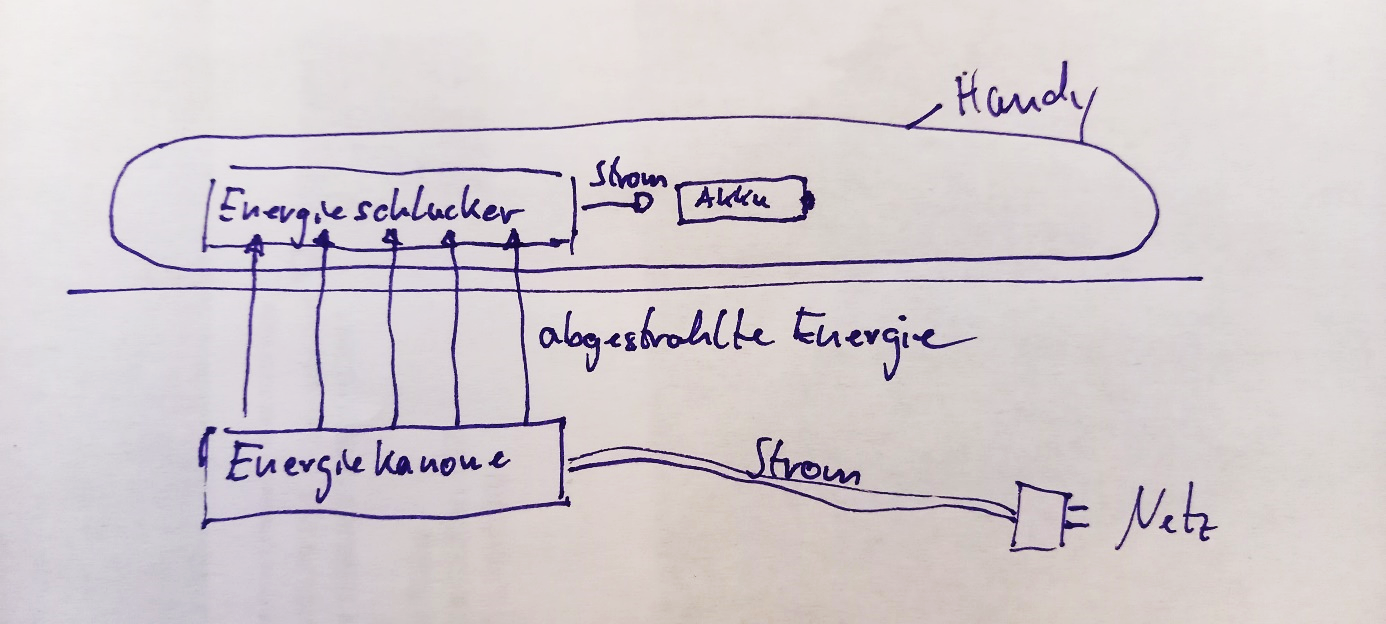 Handy
Strom
Energieschlucker
Akku
abgestrahlte Energie
Energiekanone
Strom
Netz